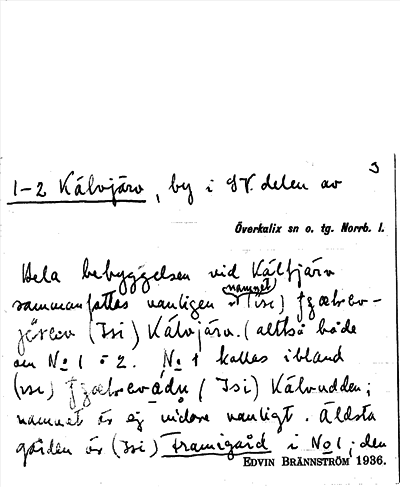 3
1-2 Kälvjärv, by i SV. delen av
Överkalix sn o. tg. Norrb. l.
Hela bebyggelsen vid Kälvjärv
namnet
sammanfattas vanligen i (isi)
(Isi) Kälvjärv. (alltså både
om No 1 o 2. No 1 kallas ibland
(isi) (Isi) Kälvudden;
namnet är ej vidare vanligt. Äldsta
gården är (Isi) Framigård i No 1; den
EDVIN BRÄNNSTRÖM 1936.